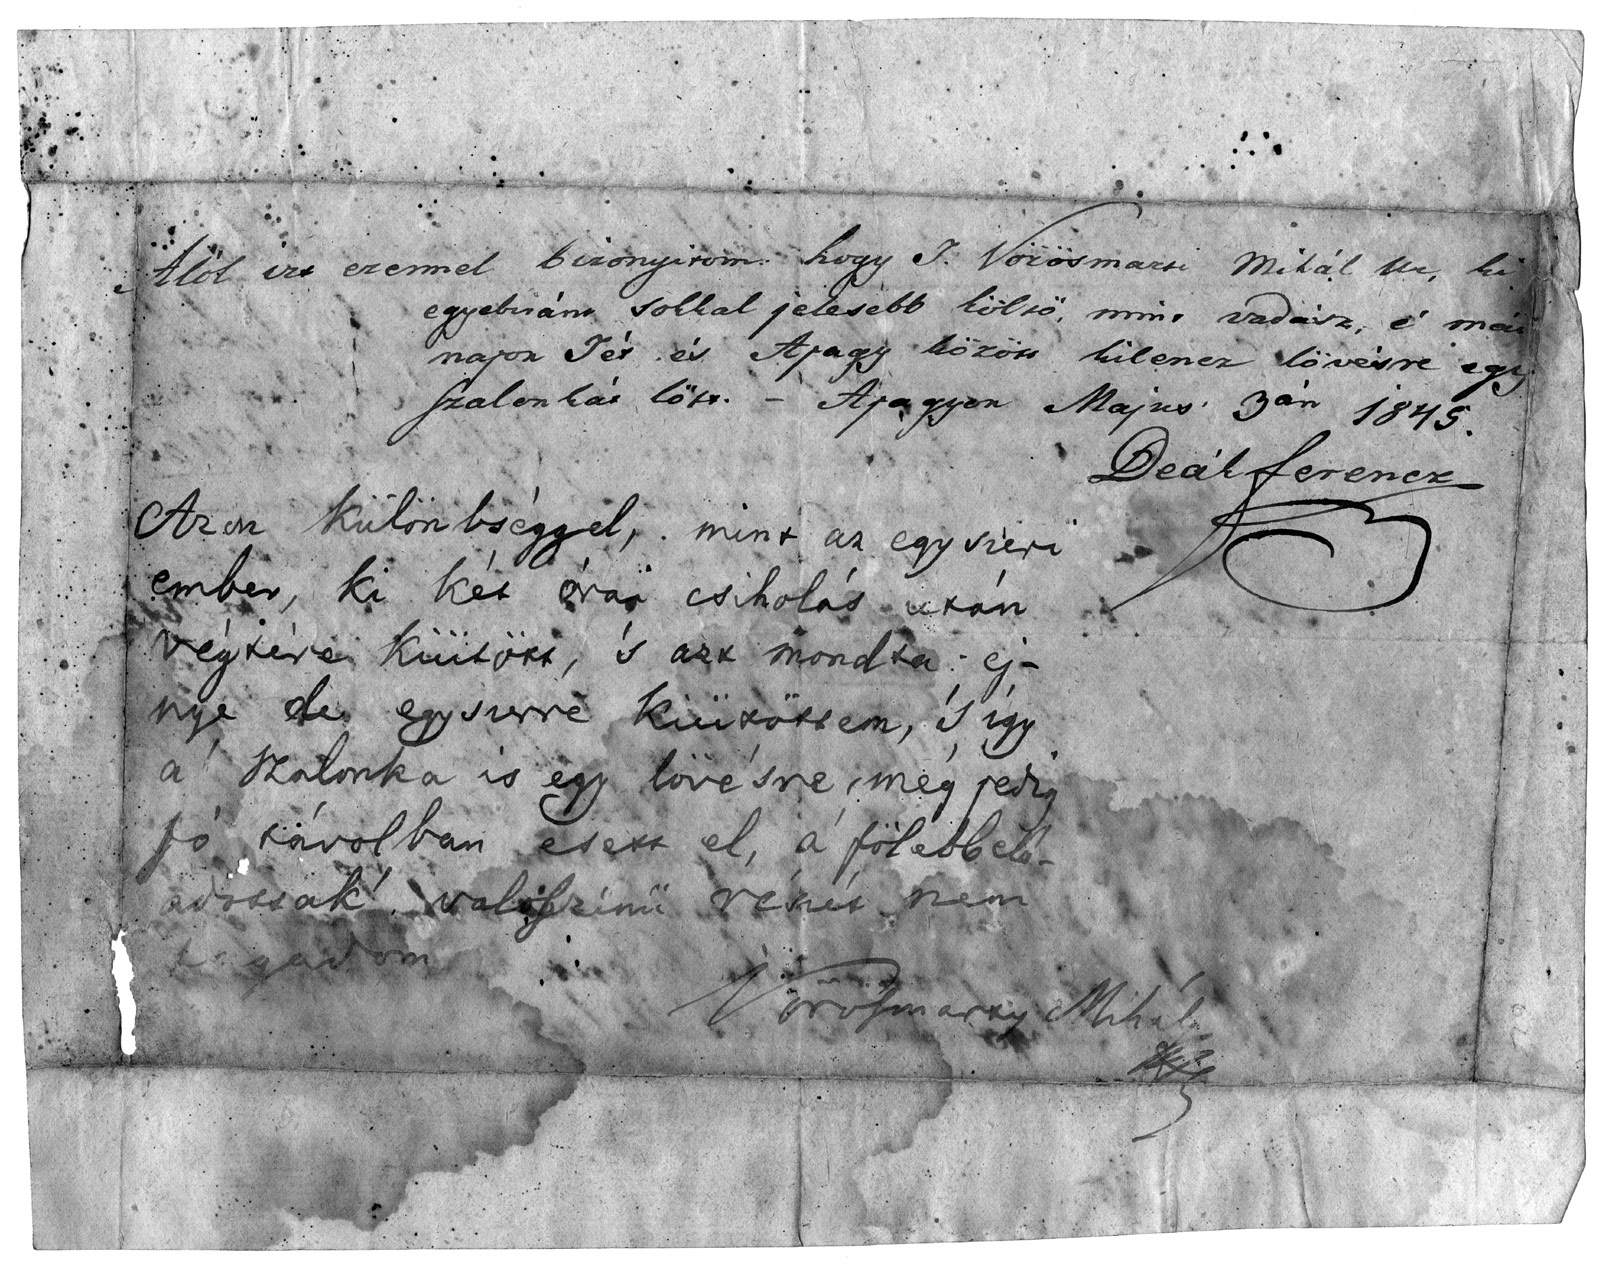 Alól irt ezennel bizonyitom. hogy T. Vörösmarti Mihál Ur, ki
egyebiránt sokkal jelesebb költő, mint vadász, é mai
napon Tét és Apagy között kilencz lövésre egy
szalonkát lőtt. – Apagyon Majus 3án 1845.
Deák Ferencz
Azon különbséggel, mint az egyszeri
ember, ki két órai csiholás után
végtére kiütött, 's azt mondta: ej-
nye de egyszerre kiütöttem, 's igy
a' szalonka is egy lövésre, még pedig
jó távolban esett el, a' fölebbelő-
adottak' valószinű részét nem
tagadom
Vörösmarty Mihál